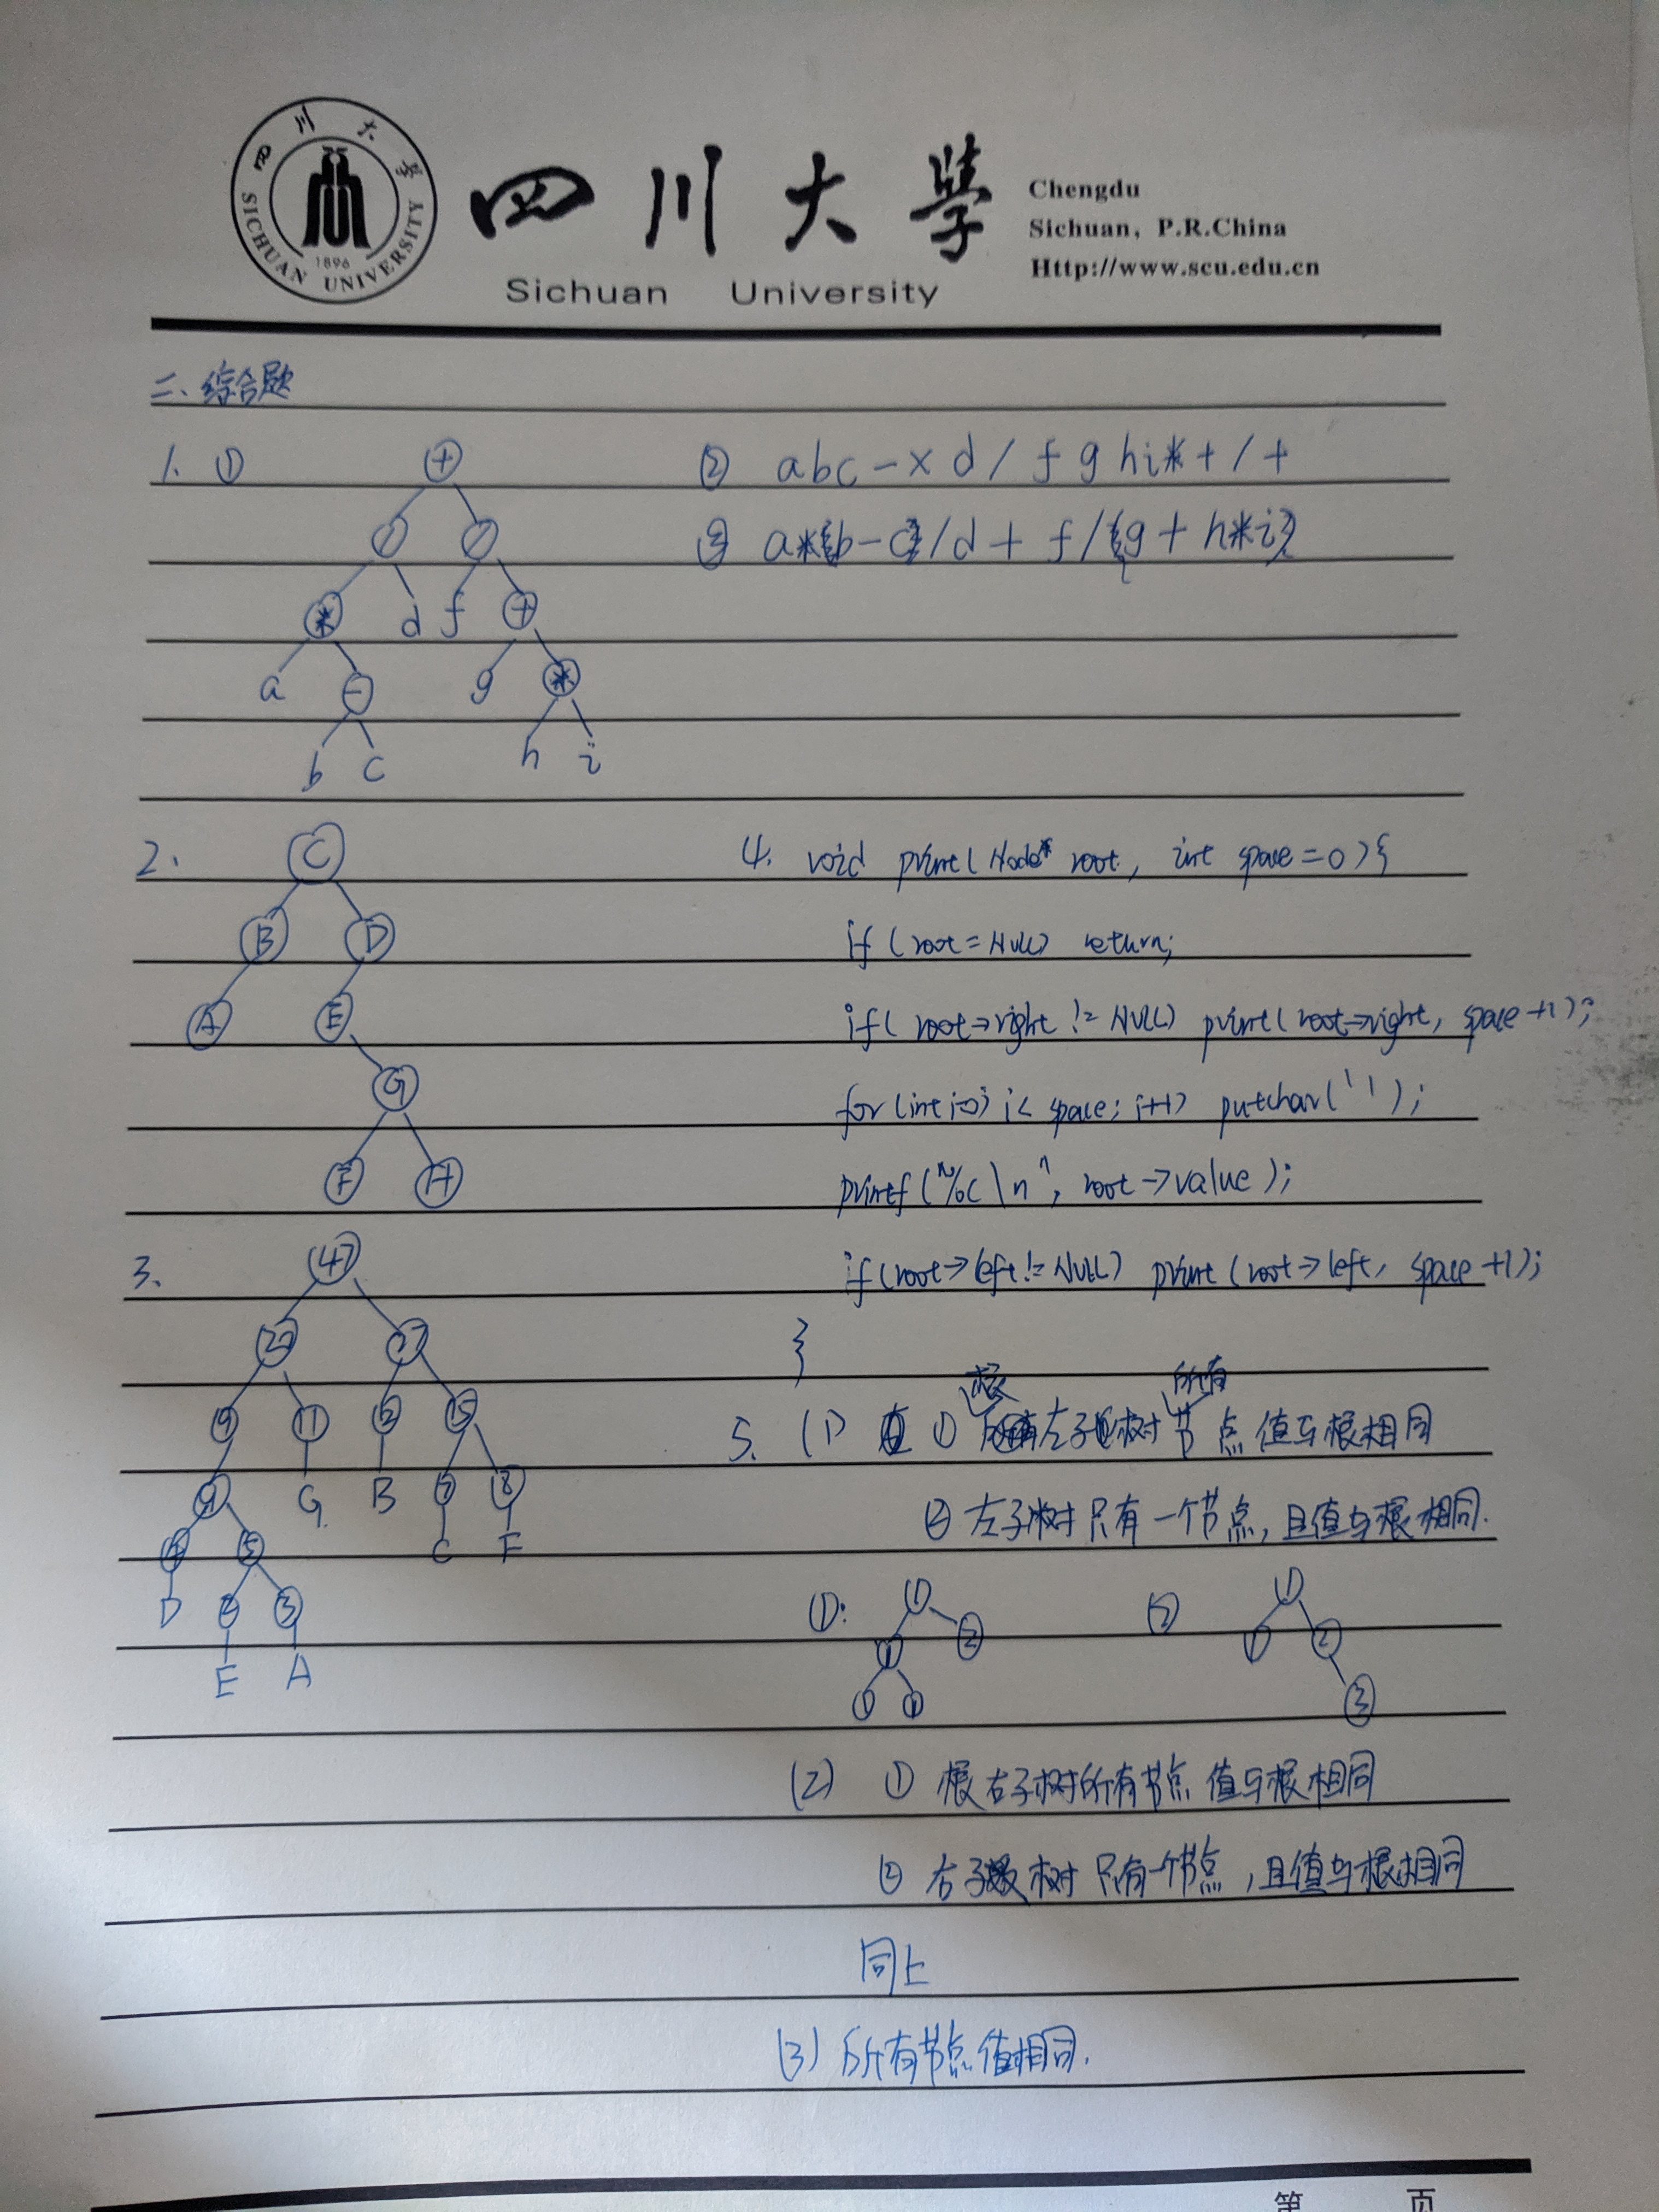 四川大學
SICHUAN UNIVERSITY
1896
四川大學
Sichuan University
Chengdu
Sichuan, P.R.China
Http://www.scu.edu.cn
二、综合题
1. ①
+
/ /
* d f +
a - g *
b c h i
② abc-×d/fghi*+/+
③ a*(b-c)/d+f/(g+h*i)
2.
C
B D
A E
G
F H
3.
47
20 27
9 11 12 15
G B 7 8
D 5 C F
2 3
E A
4. void print(Node* root, int space=0){
if (root=NULL) return;
if( root->right != NULL) print(root->right, space+1);
for(int i=0; i< space; i++) putchar(' ');
printf("%c\n", root->value);
if(root->left != NULL) print(root->left, space+1);
}
5. (1) ① 根左子树所有节点值与根相同
② 左子树只有一个节点,且值与根相同.
①:
1
1 2
1 1
②
1
1 2
3
(2) ① 根右子树所有节点值与根相同
② 右子树只有一个节点,且值与根相同
同上
(3) 所有节点值相同.
第 页